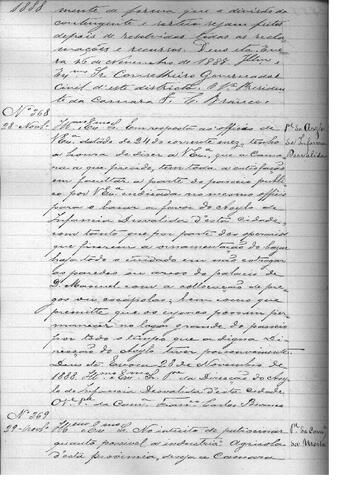 1888
mente de forma que a divisão do
contingente e sejam feitas
depois de resolvidas todas as recla-
mações e recursos. Deus etc. Evo-
ra 26 de Novembro de 1888. Illmo
Exmo Sr. Conselheiro Governador
Civil d'este districto. O Vice Presiden-
te da Camara F. C. Branco.
Nº 268
28 Novbro
Illmo Exmo Sr. Em resposta ao officio de
V. Exa. datado de 24 do corrente mez, tenho
a honra de dizer a V. Exa., que a Cama-
ra a que presido, tem toda a satisfação
em facilitar a parte do passeio publi-
co por V. Exa. indicada no mesmo officio
para o bazar a favor do Asylo de
Infancia Desvalida d'esta Cidade,
com tanto que por parte dos operarios
que fizerem a ornamentação do bazar
haja todo o cuidado em não estragar
as paredes ou arcos do palacio de
D. Manuel com a collocação de pre-
gos ou escapulas; bem como que
permitte que os possam per-
manecer no lago grande do passeio
por todo o tempo que a digna Di-
recção do Asylo tiver por conveniente.
Deus etc. Evora 28 de Novembro de
1888. Illmo Exmo Sr. da Direcção do Asy-
lo de Infancia Desvalida d'esta Cidade.
O V. P. da Camª. Franco. Carlos Branco
do Asylo
de Infancia
Desvalida
Nº 269
29 Novbro
Illmo Exmo Sr. No intuito de
quanto possivel a industria Agricola
d'esta provincia, deseja a Camara
da Cama